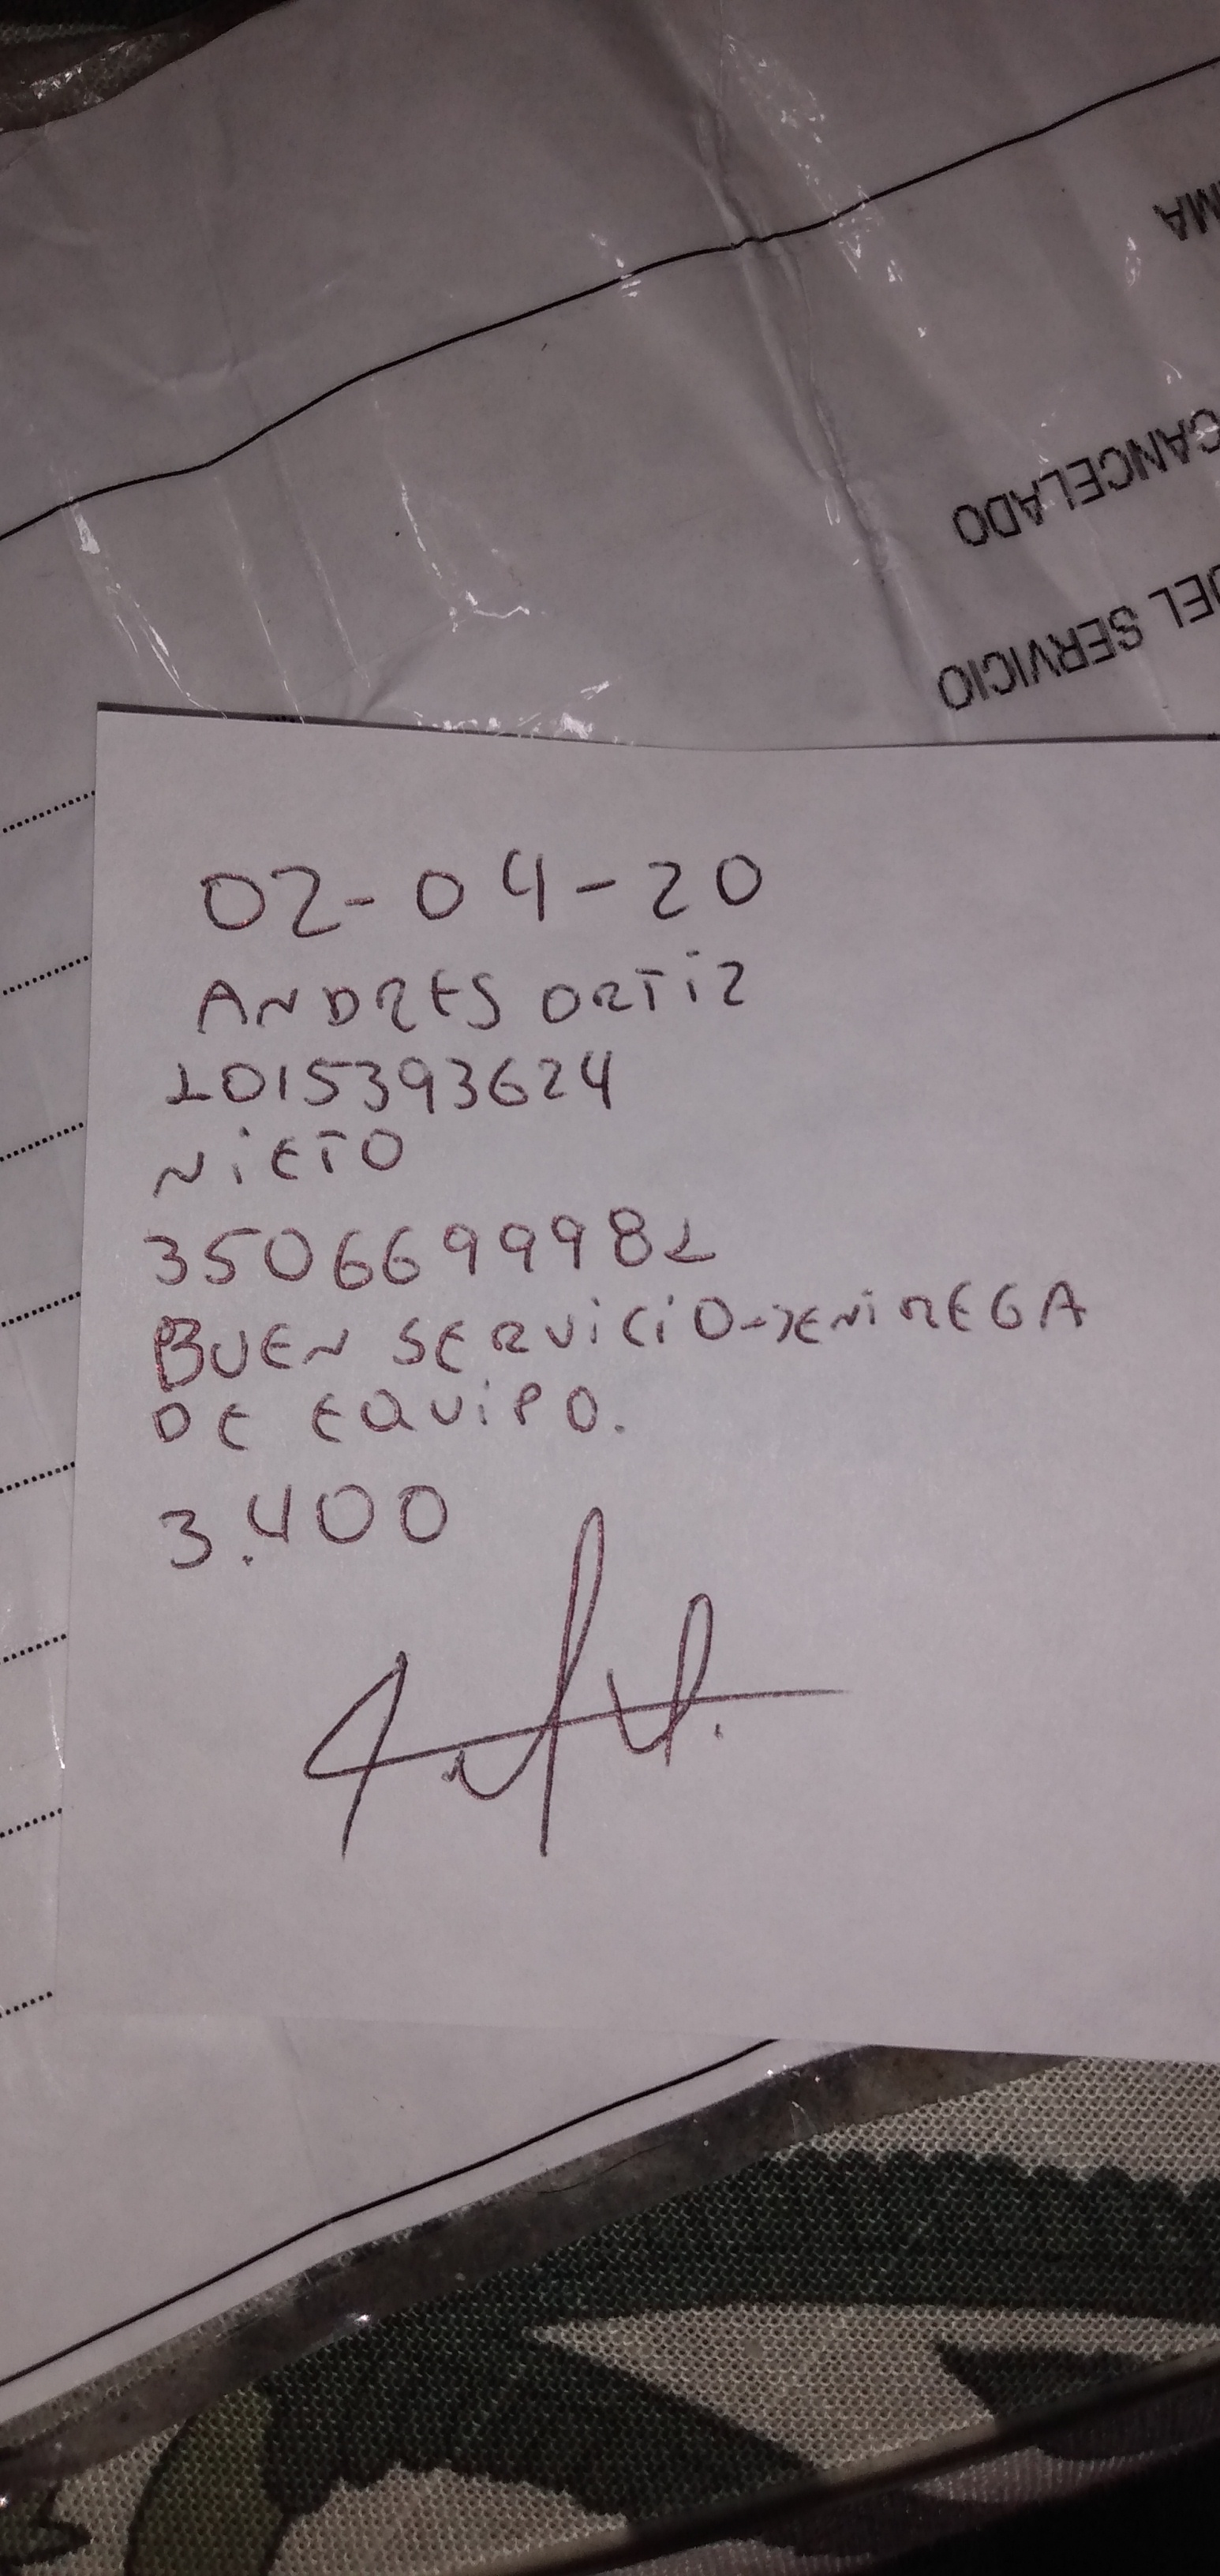 MA
CANCELADO
DEL SERVICIO
02-04-20
ANDRES ORTiz
1015393624
NiETO
3506699981
BUEN SERViCiO-ENTREGA
DE EQUiPO.
3.400